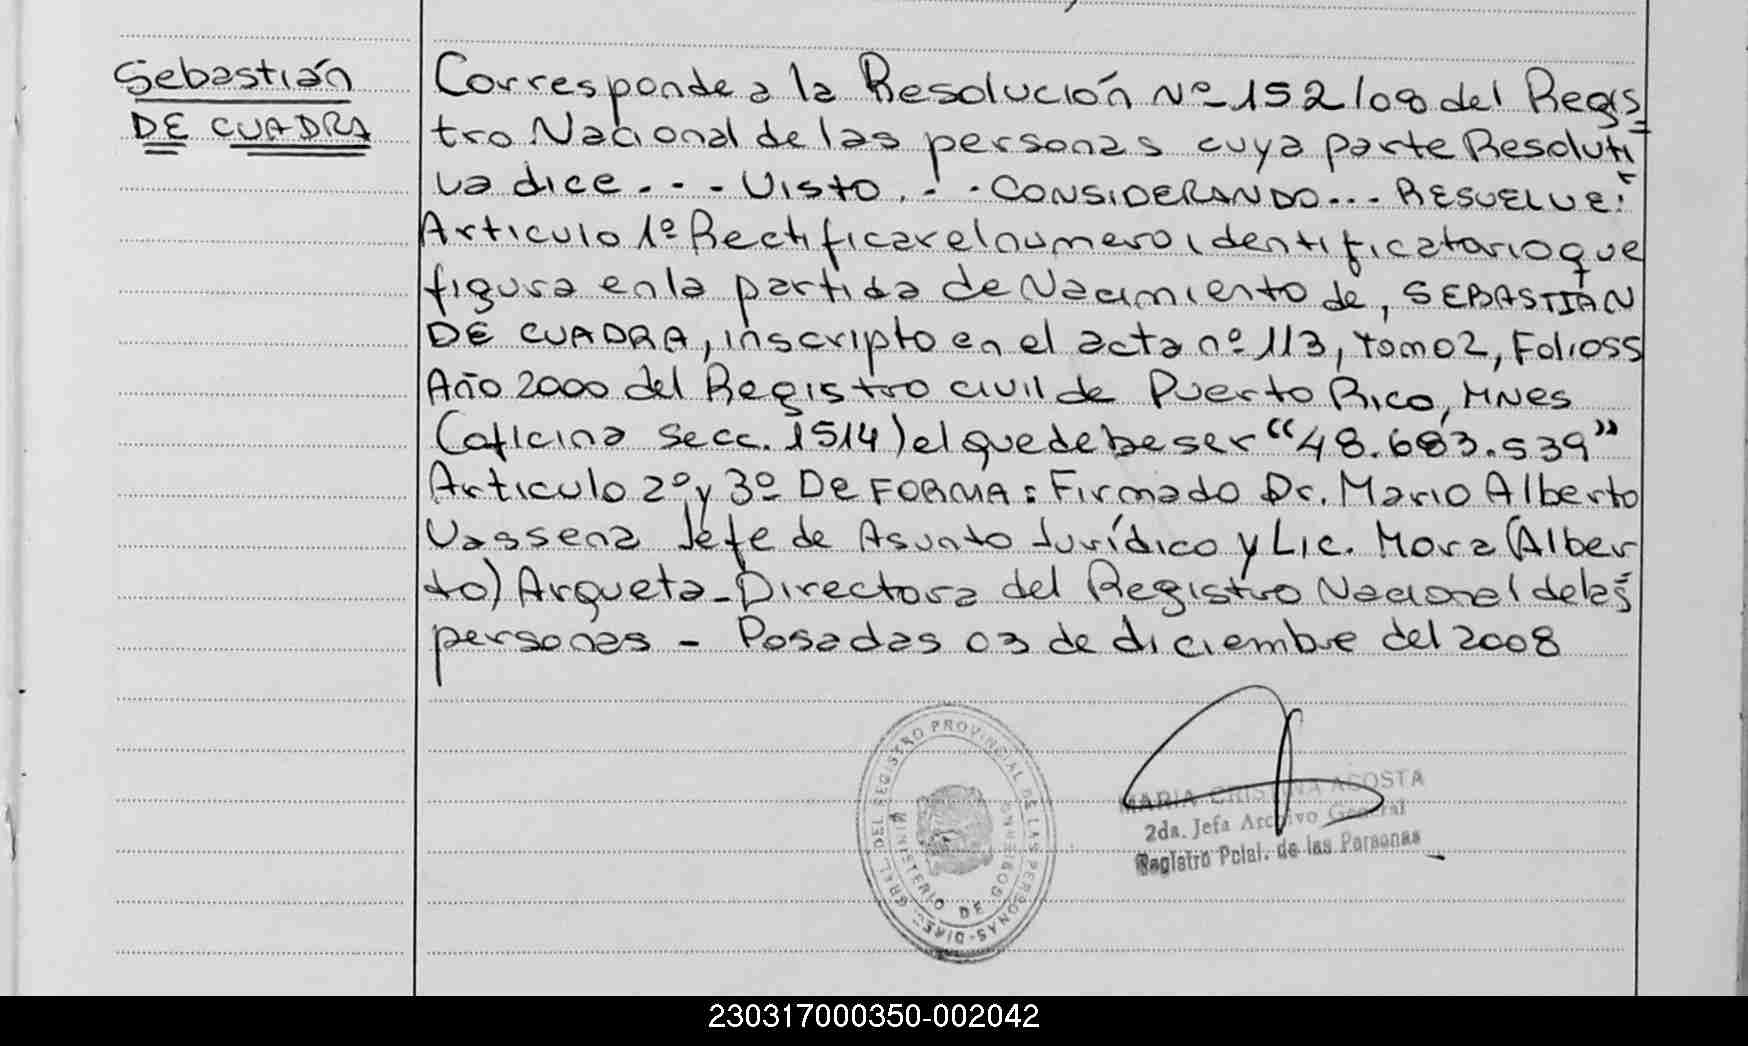 Sebastián
DE CUADRA
Corresponde a la Resolución Nº 152/08 del Regis
tro Nacional de las personas cuya parte Resoluti
va dice... Visto... CONSIDERANDO... RESUELVE:
Articulo 1º Rectificar el numero identificatorio que
figura en la partida de Nacimiento de, SEBASTIÁN
DE CUADRA, inscripto en el acta nº 113, tomo 2, Folio 55
Año 2000 del Registro civil de Puerto Rico, MNES
(oficina secc. 1514) el que debe ser "48.683.539"
Articulo 2º y 3º DE FORMA: Firmado Dr. Mario Alberto
Vassena Jefe de Asunto Jurídico y Lic. Mora (Alber
to) Arqueta - Directora del Registro Nacional de las
personas - Posadas 03 de diciembre del 2008
DIREC. GRAL. DEL REGISTRO PROVINCIAL DE LAS PERSONAS
MINISTERIO DE GOBIERNO
MARIA CRISTINA ACOSTA
2da. Jefa Archivo General
Registro Pcial. de las Personas
230317000350-002042